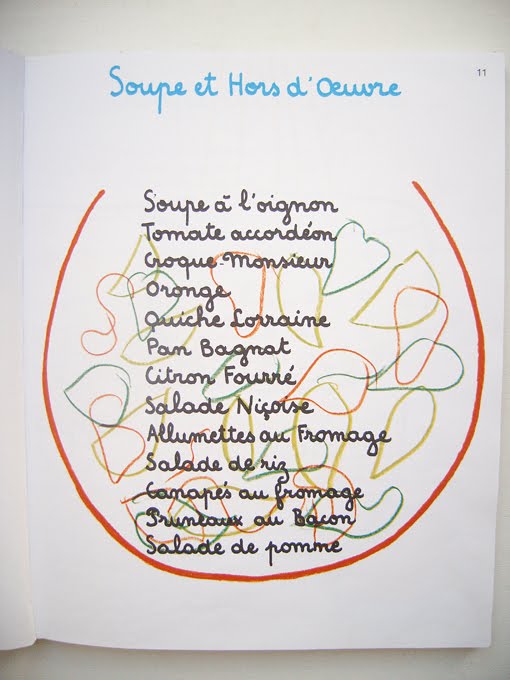 11
Soupe et Hors d'Œuvre
Soupe à l'oignon
Tomate accordéon
Croque-Monsieur
Oronge
Quiche Lorraine
Pan Bagnat
Citron Fourré
Salade Niçoise
Allumettes au Fromage
Salade de riz
Canapés au fromage
Pruneaux au Bacon
Salade de pomme